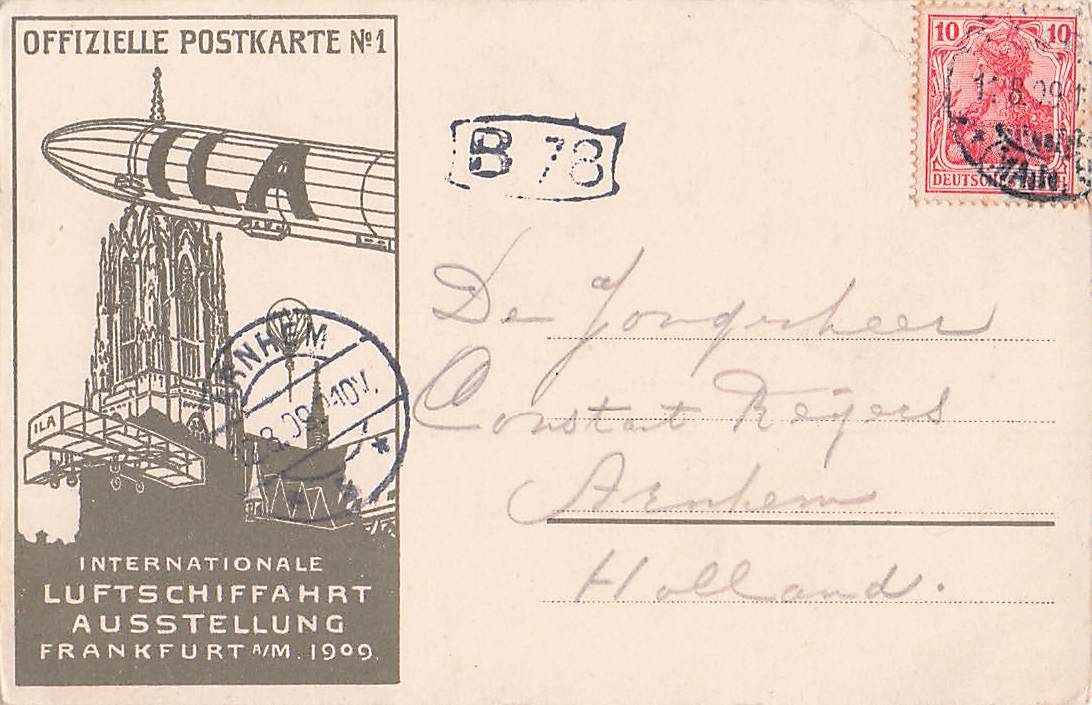 OFFIZIELLE POSTKARTE Nº1
ILA
ILA
INTERNATIONALE
LUFTSCHIFFAHRT
AUSSTELLUNG
FRANKFURT A/M. 1909.
ARNHEM
8.09 10V.
B 78
10 10
8.09
DEUTSCHES
De Jonqheer
Constant Reijers
Arnhem
Holland.